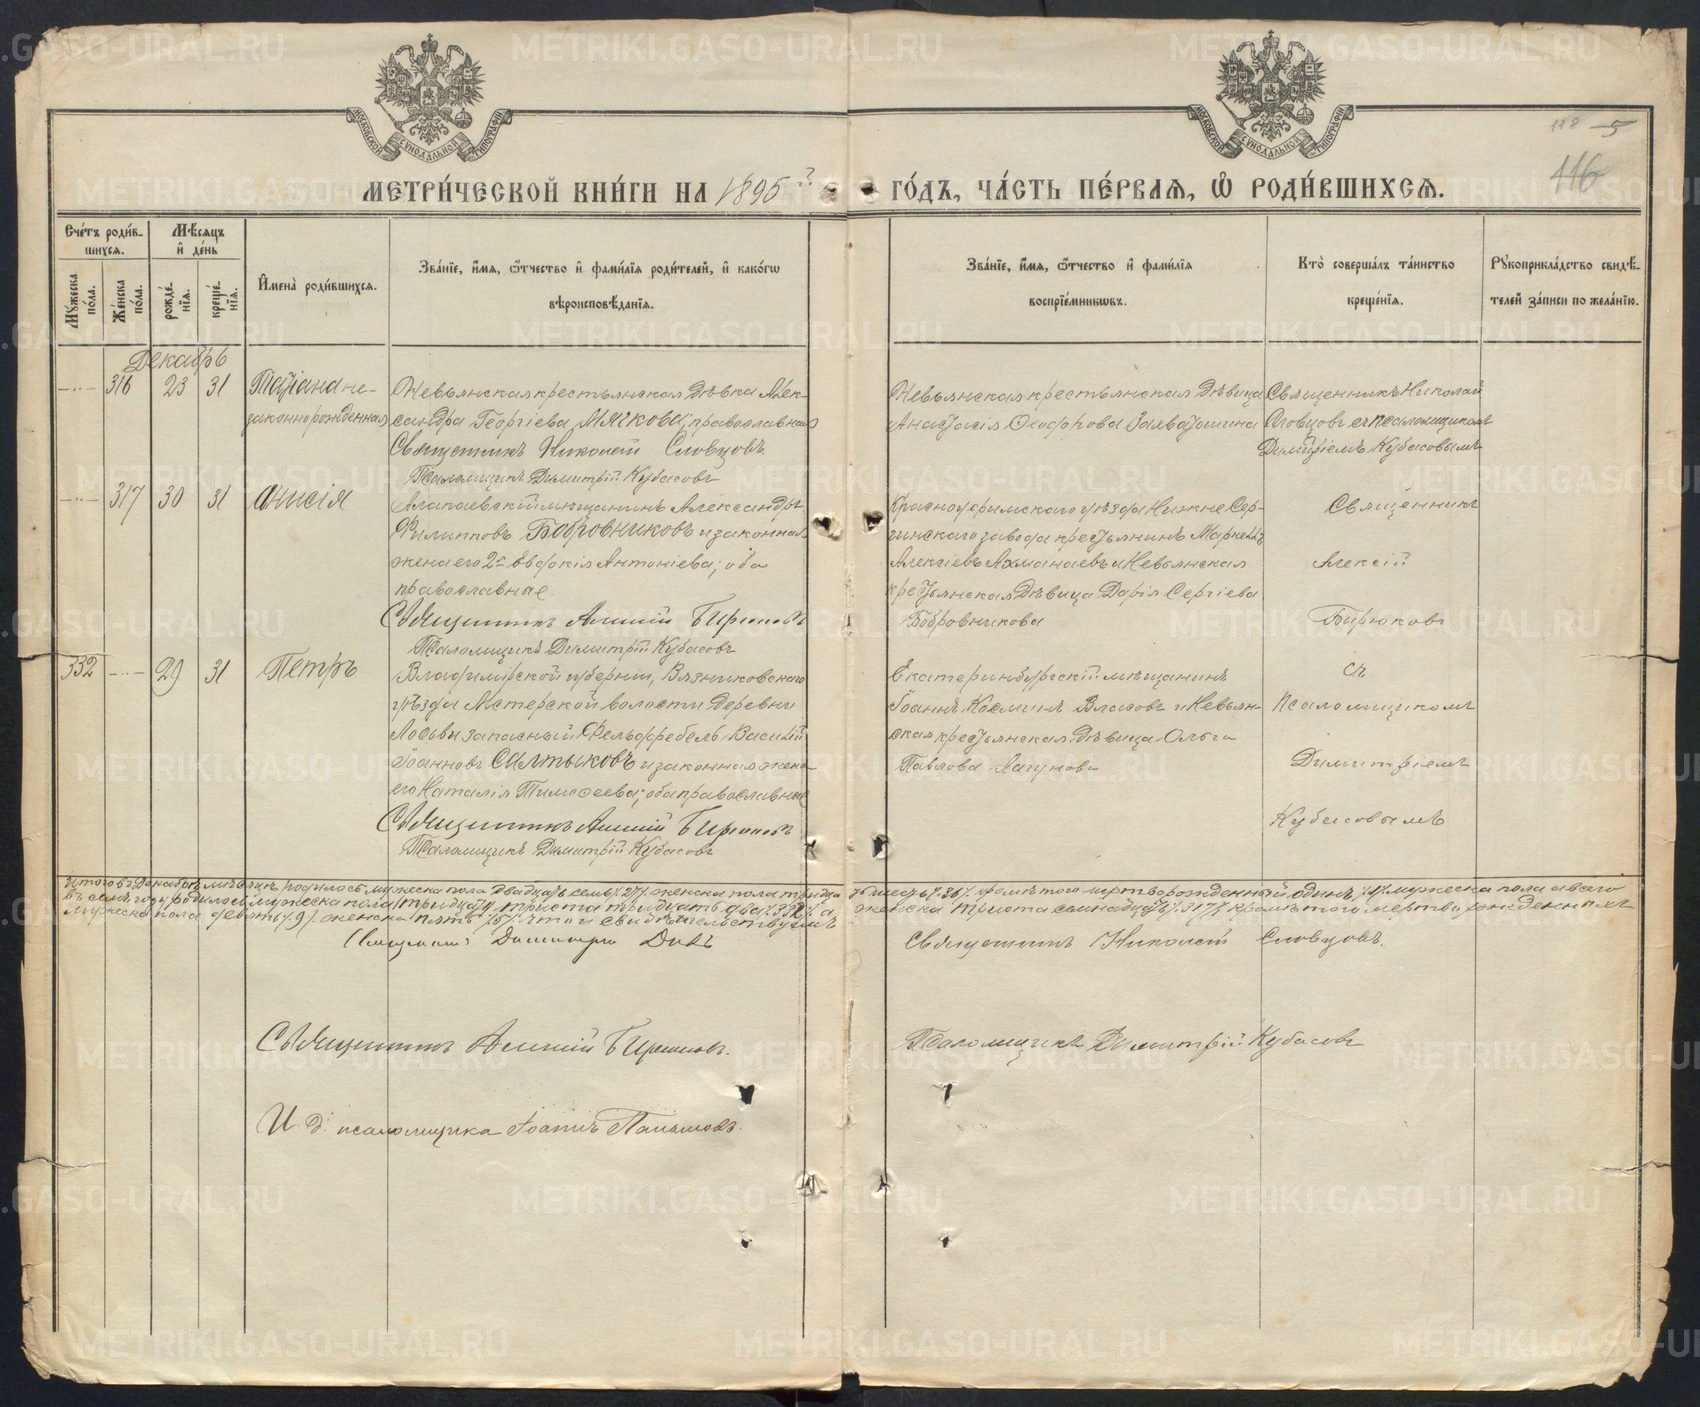 МЕТРИ́ЧЕСКОЙ КНИ́ГИ НА 1895й
ГО́ДЪ, ЧА́СТЬ ПЕ́РВАЯ, Ѽ РОДИ́ВШИХСЯ.
118 5
116
Сче́тъ роди́в-
шихся.
Му́жеска по́ла.
Же́нска по́ла.
Мѣ́сяцъ
и҆ де́нь
рожде́нїя.
креще́нїя.
И҆мена̀ роди́вшихся.
Зва́нїе, и҆́мя, ѻ҆́тчество и҆ фами́лїя роди́телей, и҆ како́гѡ
вѣроисповѣ́данїя.
Зва́нїе, и҆́мя, ѻ҆́тчество и҆ фами́лїя
воспрїе́мникѡвъ.
Кто̀ соверша́лъ та́инство
креще́нїя.
Рꙋкоприкла́дство свидѣ́-
телей за́писи по жела́нїю.
Декабрь
316 23 31 Татіана не-
законнорожденная
Невьянская крестьянская дѣвка Алек-
сандра Георгіева Мячкова; православная
Священникъ Николай Словцовъ.
Псаломщикъ Димитрій Кубасовъ
Невьянская крестьянская дѣвица
Анастасія Ѳеофорова Захватошина
Священникъ Николай
Словцовъ съ псаломщикомъ
Димитріемъ Кубасовымъ
317 30 31 Анисія
Алапаевскій мѣщанинъ Александръ
Филипповъ Бобровниковъ и законная
жена его 2я Евдокія Антоніева; оба
православные.
Священникъ Алексій Бирюковъ
Псаломщикъ Димитрій Кубасовъ
Красноуфимскаго уѣзда Нижне Сер-
гинскаго завода крестьянинъ Маркеллъ
Алексіевъ Ахманаевъ и Невьянская
крестьянская дѣвица Дарія Сергіева
Бобровникова
Священникъ
Алексій
Бирюковъ
332 29 31 Петръ
Владимірской губерніи, Вязниковскаго
уѣзда Мстерской волости деревни
запасный Фельдфебель Василій
Іоанновъ Салтыковъ и законная жена
его Наталія Тимоѳеева; оба православные
Священникъ Алексій Бирюковъ
Псаломщикъ Димитрій Кубасовъ
Екатеринбургскій мѣщанинъ
Іоаннъ Косминъ Власовъ и Невьян-
ская крестьянская дѣвица Ольга
Павлова
съ
Псаломщикомъ
Димитріемъ
Кубасовымъ
Итого въ Декабрѣ мѣсяцѣ родилось мужеска пола двадцать семь /27/ женска пола тридцать шесть /36/ кромѣ того мертворожденный одинъ /1/ мужеска пола а всего
въ семъ году родилось мужеска пола триста тридцать два /332/ а женска триста семнадцать /317/ кромѣ того мертворожденныхъ
мужеска пола девять /9/ женска пять /5/ что и свидѣтельствуемъ
Священникъ Димитрій
Священникъ Николай Словцовъ.
Священникъ Алексій Бирюковъ.
Псаломщикъ Димитрій Кубасовъ
И. д. псаломщика Іоаннъ
METRIKI.GASO-URAL.RU